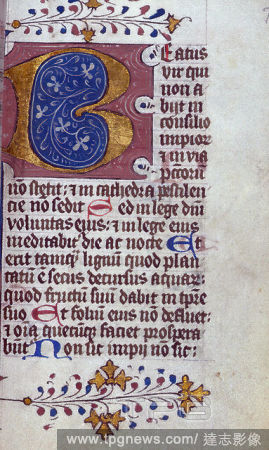 Beatus
vir qui
non a
bijt in
consilio
impior
⁊ in via
pccorū
no stetit: ⁊ in cathedra pestilen
tie no sedit Sed in lege dm̄
voluntas eius: ⁊ in lege eius
meditabit die ac nocte Et
erit tamq lignum quod plan
tatū ē secus decursus aquar
quod fructū suū dabit in tpre
suo Et foliū eius nō defluet:
⁊ oīa quecūqȝ faciet prospera
būt Non sic impij nō sic:
www.tpgnews.com/ 達志影像